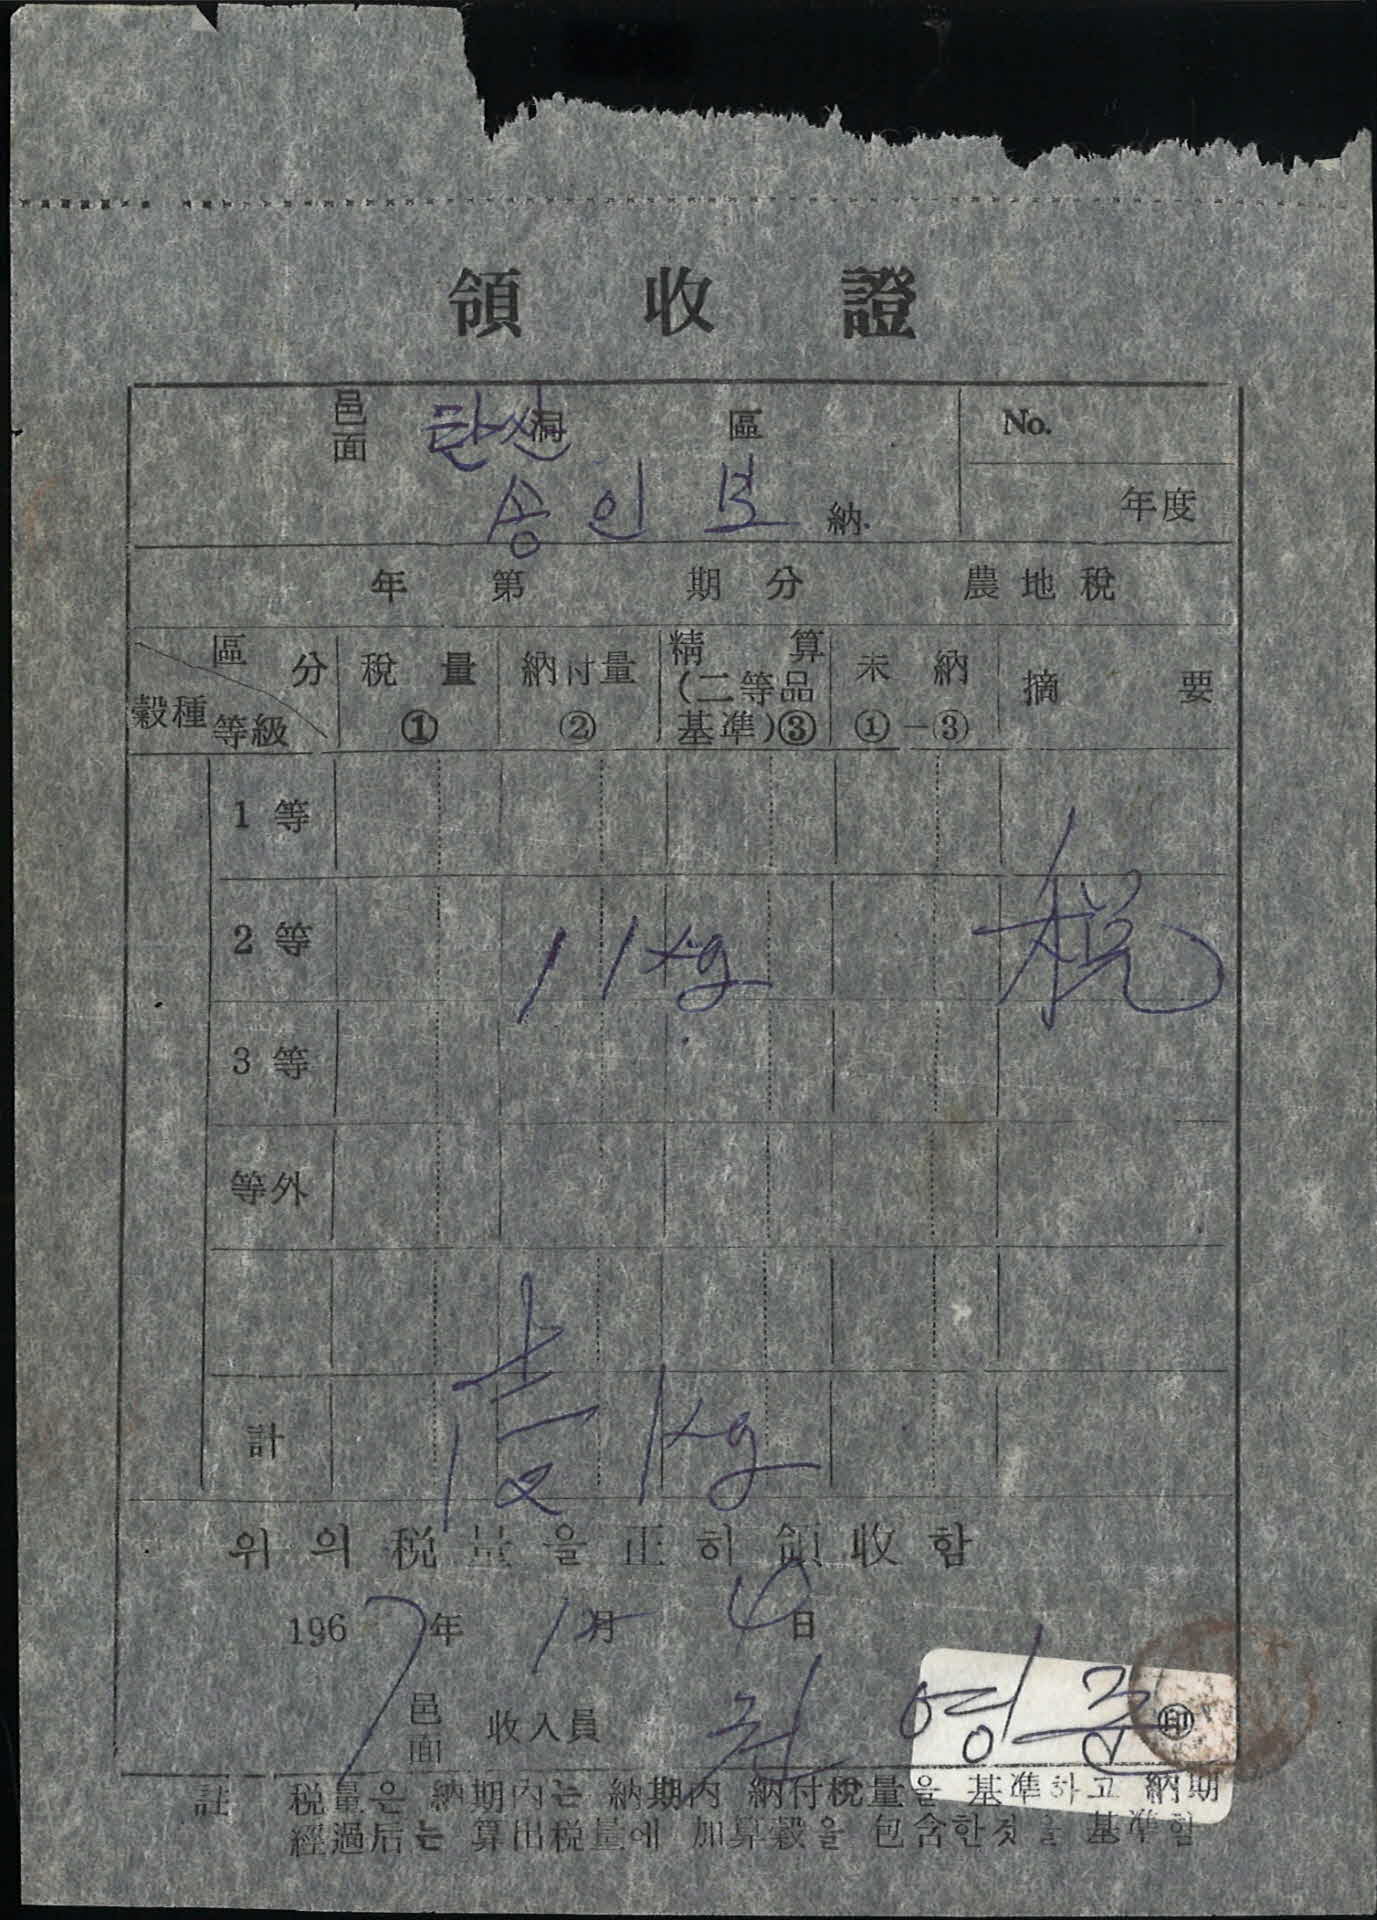 領收證
邑面 洞 區 No.
송인보 納. 年度
年 第 期分 農地稅
區分 穀種 等級 稅量① 納付量② 精算(二等品基準)③ 未納①-③ 摘要
1等
2等 11kg 税
3等
等外
計 1kg
위의 税量을 正히 領收함
1967年 12月 4日
邑面 收入員 권영 印
註 税量은 納期內는 納期內 納付稅量을 基準하고 納期
經過后는 算出税量에 加算穀을 包含한것을 基準함